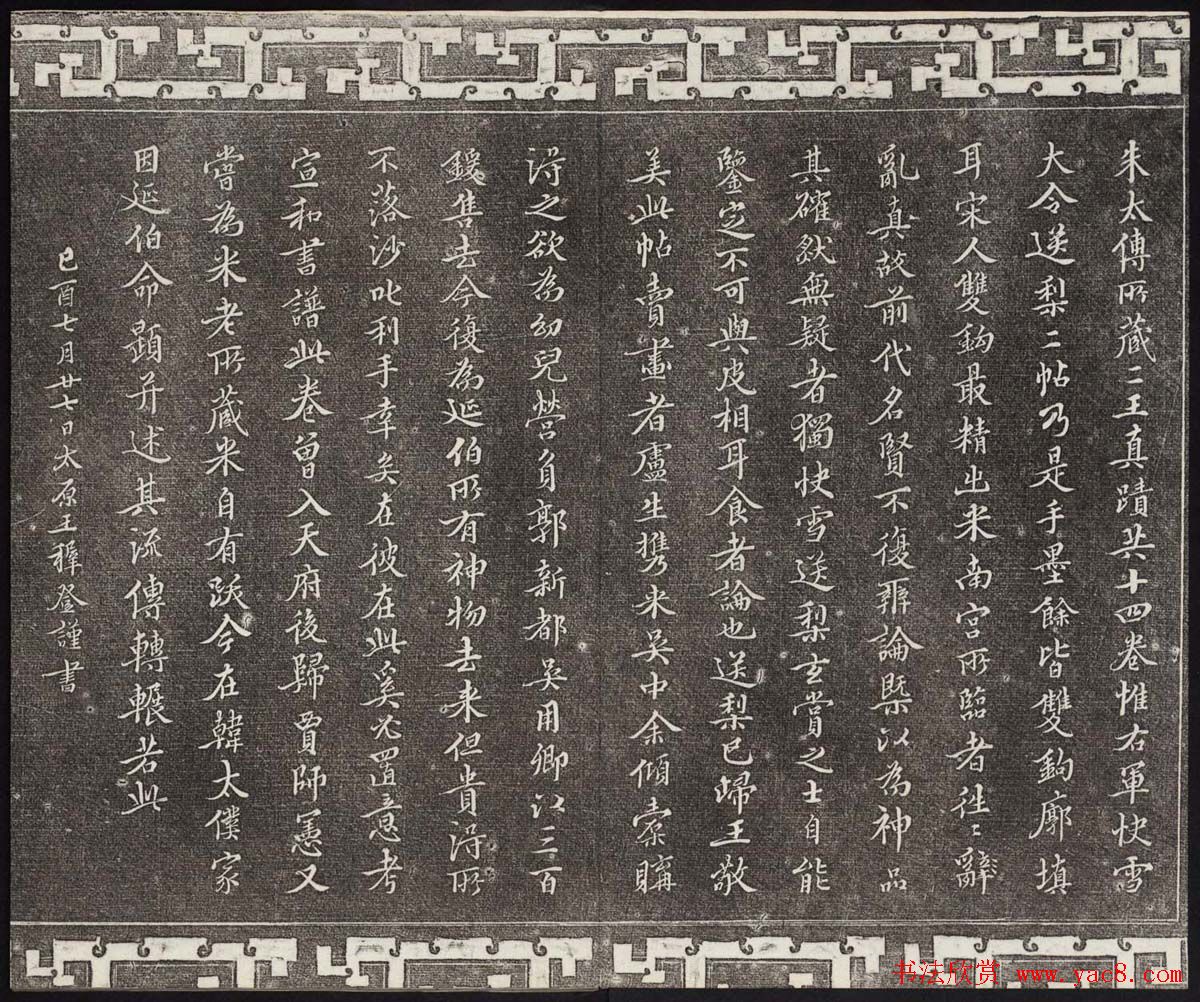 朱太傅所藏二王真蹟共十四卷惟右軍快雪
大令送梨二帖乃是手墨餘皆雙鉤廓填
耳宋人雙鉤最精出米南宮所臨者往〻
亂真故前代名賢不復辨論槩以為神品
其確然無疑者獨快雪送梨玄賞之士自能
鑒定不可與皮相耳食者論也送梨已歸王敬
美此帖賣畫者盧生攜來吳中余傾橐購
得之欲為幼兒營負郭新都吳用卿以三百
鍰售去今復為延伯所有神物去來但貴得所
不落沙叱利手幸矣在彼在此奚必置意考
宣和書譜此卷曾入天府後歸賈師憲又
嘗為米老所藏米自有跋今在韓太僕家
因延伯命題并述其流傳轉輾若此
己酉七月廿七日太原王穉登謹書
书法欣赏 www.yac8.com